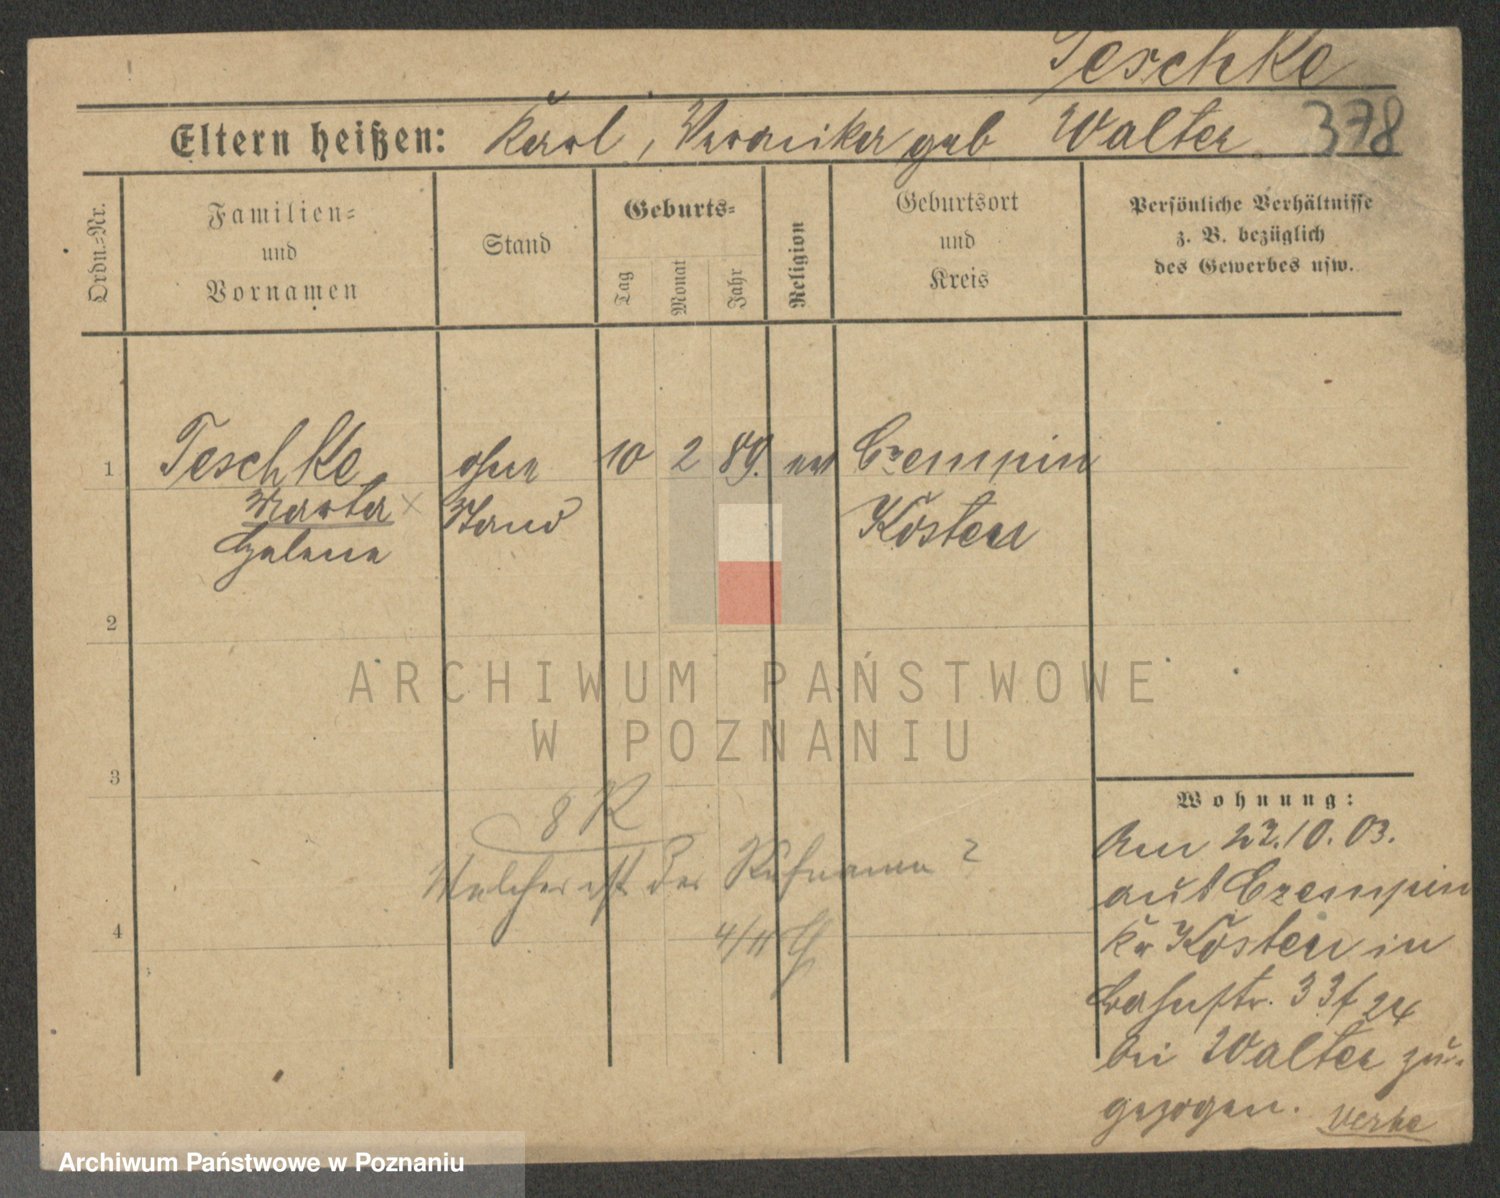 Teschke
Eltern heißen: Karl, Veronika geb Walter. 378
Ordn.=Nr.
Familien=
und
Vornamen
Stand
Geburts=
Tag
Monat
Jahr
Religion
Geburtsort
und
Kreis
Persönliche Verhältnisse
z. B. bezüglich
des Gewerbes usw.
1 Teschke ohne 10 2 89. ev Czempin
Marta × Stand Kosten
Helene
2
3
4
8 R
Welcher ist der Rufname?
4/11
Wohnung:
Am 22.10.03.
aus Czempin
Kr Kosten in
Bahnstr. 33 f 24
bei Walter zu-
gezogen.
ARCHIWUM PAŃSTWOWE
W POZNANIU
Archiwum Państwowe w Poznaniu